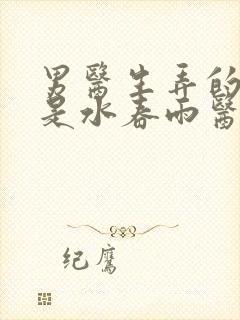 男醫生弄的
是水春雨醫
纪鹰